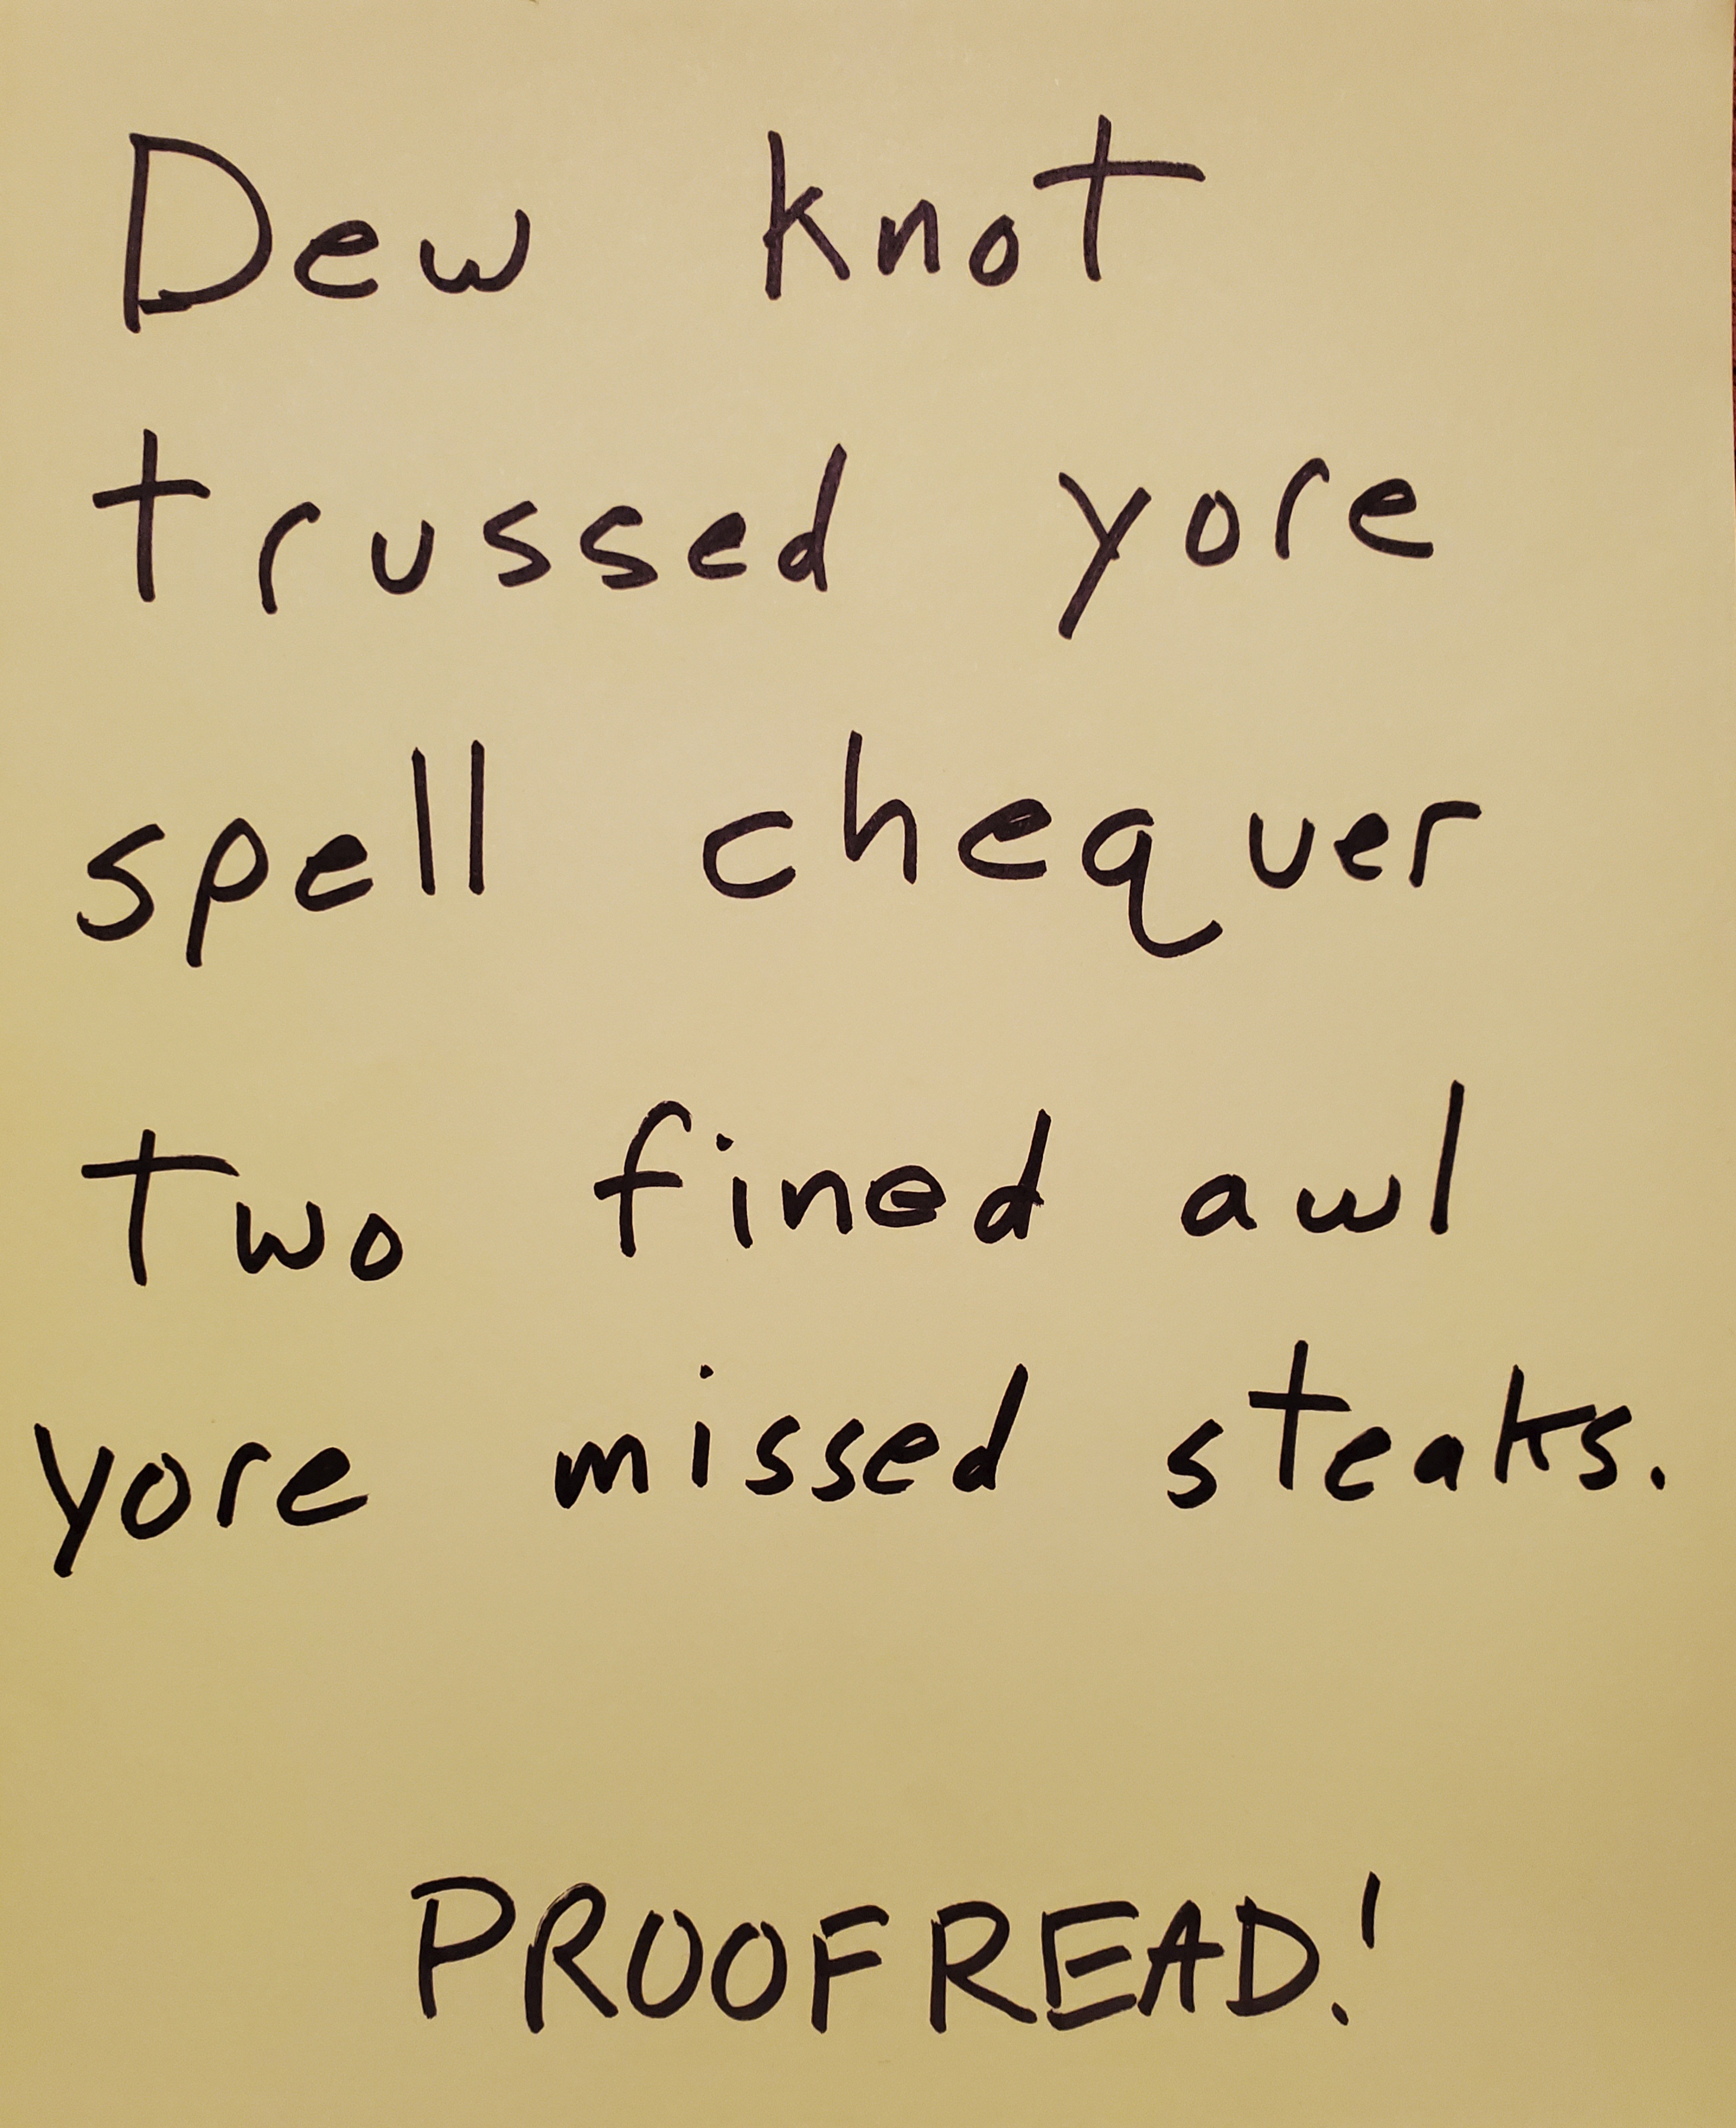 Dew knot
trussed yore
spell chequer
two fined awl
yore missed steaks.
PROOFREAD!